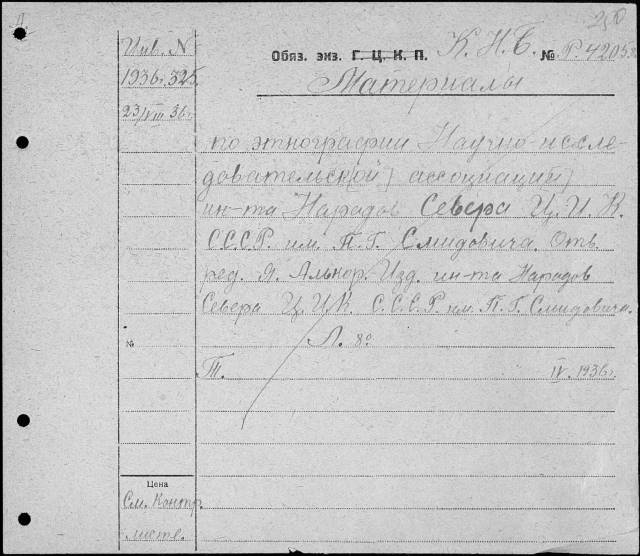 Инв. N
1936г. 325.
23/VIII 36г.
Обяз. экз. Г. Ц. К. П. К. Н. Б. № Р. 4205
Материалы
по этнографии Научно-иссле-
довательской) ассоциаций)
ин-та Народов Севера Ц. И. К.
С.С.С.Р. им. П. Г. Смидовича. Отв.
ред. Я. Алькор. Изд. ин-та Народов
Севера Ц. И. К. С.С.С.Р. им. П. Г. Смидовича.
№ Л. 8°
Т. IV. 1936г.
Цена
См. Контр.
листе.